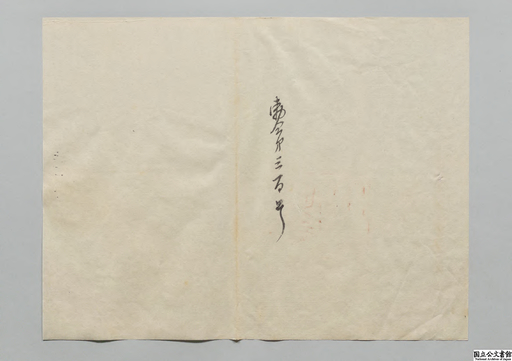 勅令第三百号
国立公文書館
National Archives of Japan